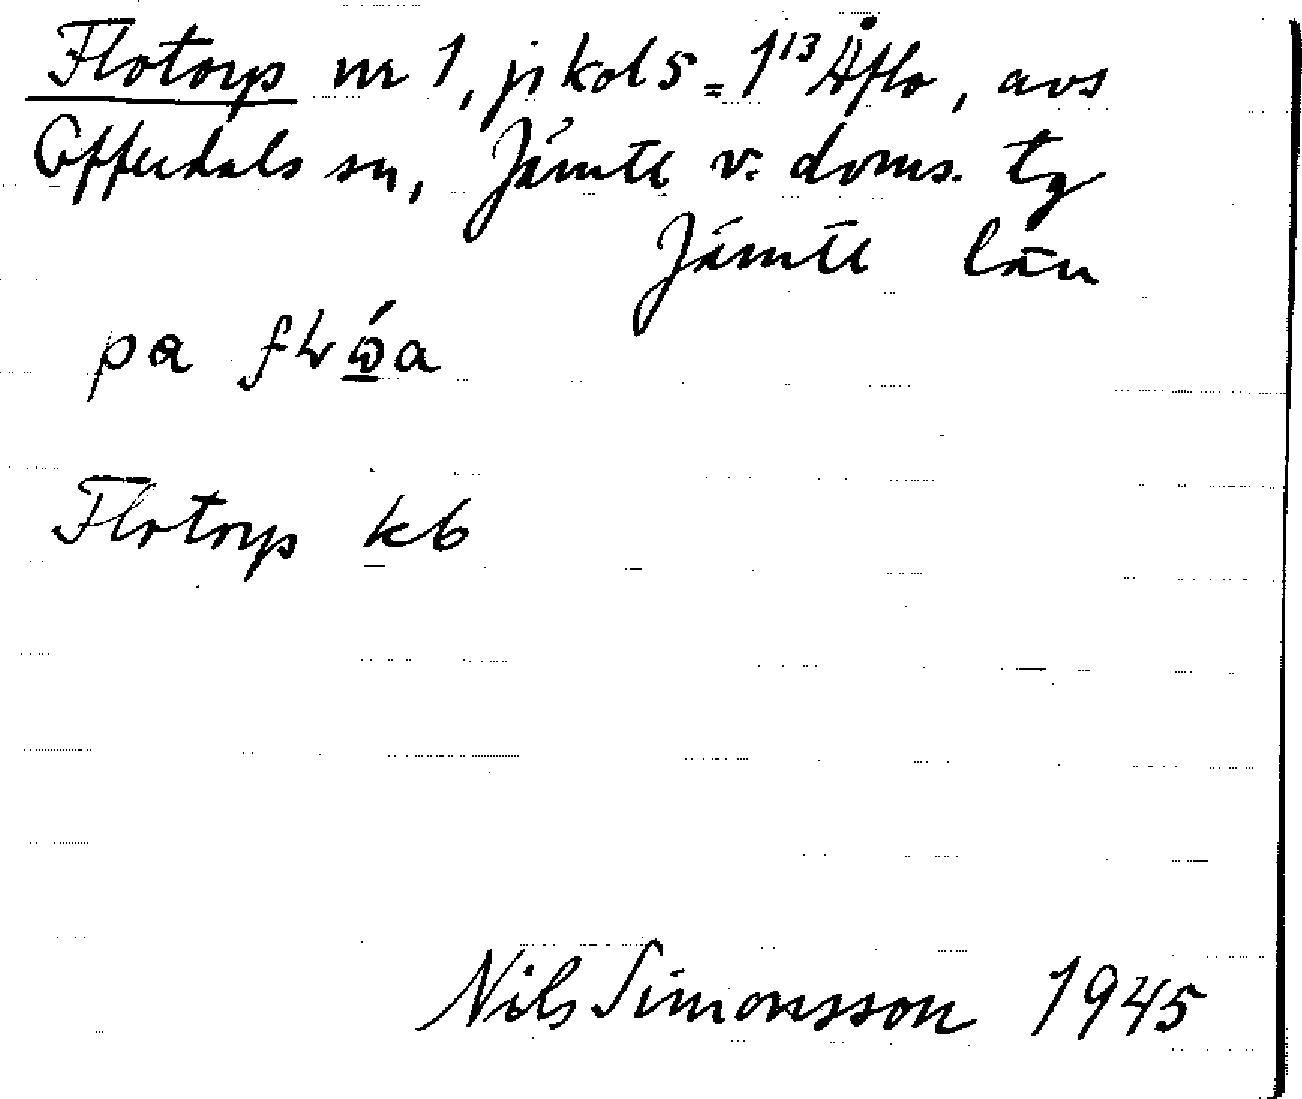 Flotorp nr 1, ji kol 5 = 1¹³ Åflo, avs
Offerdals sn, Jämtl v. doms. tg
Jämtl län
pa
Flotorp kb
Nils Simonsson 1945